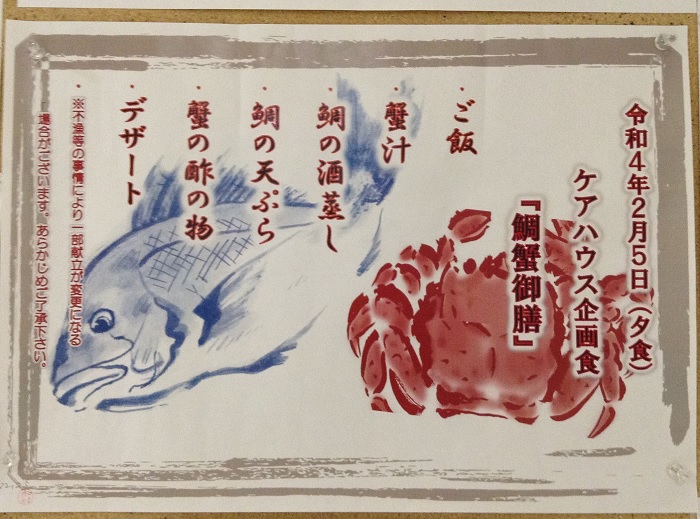 令和4年2月5日（夕食）
ケアハウス企画食
『鯛蟹御膳』
・ご飯
・蟹汁
・鯛の酒蒸し
・鯛の天ぷら
・蟹の酢の物
・デザート
※不漁等の事情により一部献立が変更になる
場合がございます。あらかじめご了承下さい。